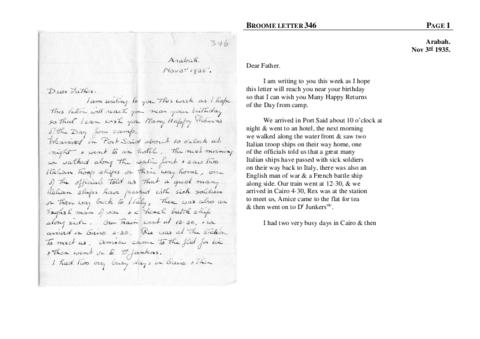 346
Arabah.
Nov 3rd 1935.
Dear Father.
I am writing to you this week as I hope
this letter will reach you near your birthday
so that I can wish you Many Happy Returns
of the Day from camp.
We arrived in Port Said about 10 o'clock at
night & went to an hotel, the next morning
we walked along the water front & saw two
Italian troop ships on their way home, one
of the officials told us that a great many
Italian ships have passed with sick soldiers
on their way back to Italy, there was also an
English man of war & a French battle ship
along side. Our train went at 12-30, & we
arrived in Cairo 4-30. Rex was at the station
to meet us, Amice came to the flat for tea
& then went on to Dr Junkers.
I had two very busy days in Cairo & then
BROOME LETTER 346
PAGE 1
Arabah.
Nov 3rd 1935.
Dear Father.
I am writing to you this week as I hope
this letter will reach you near your birthday
so that I can wish you Many Happy Returns
of the Day from camp.
We arrived in Port Said about 10 o'clock at
night & went to an hotel, the next morning
we walked along the water front & saw two
Italian troop ships on their way home, one
of the officials told us that a great many
Italian ships have passed with sick soldiers
on their way back to Italy, there was also an
English man of war & a French battle ship
along side. Our train went at 12-30, & we
arrived in Cairo 4-30, Rex was at the station
to meet us, Amice came to the flat for tea
& then went on to Dr Junkers
I had two very busy days in Cairo & then